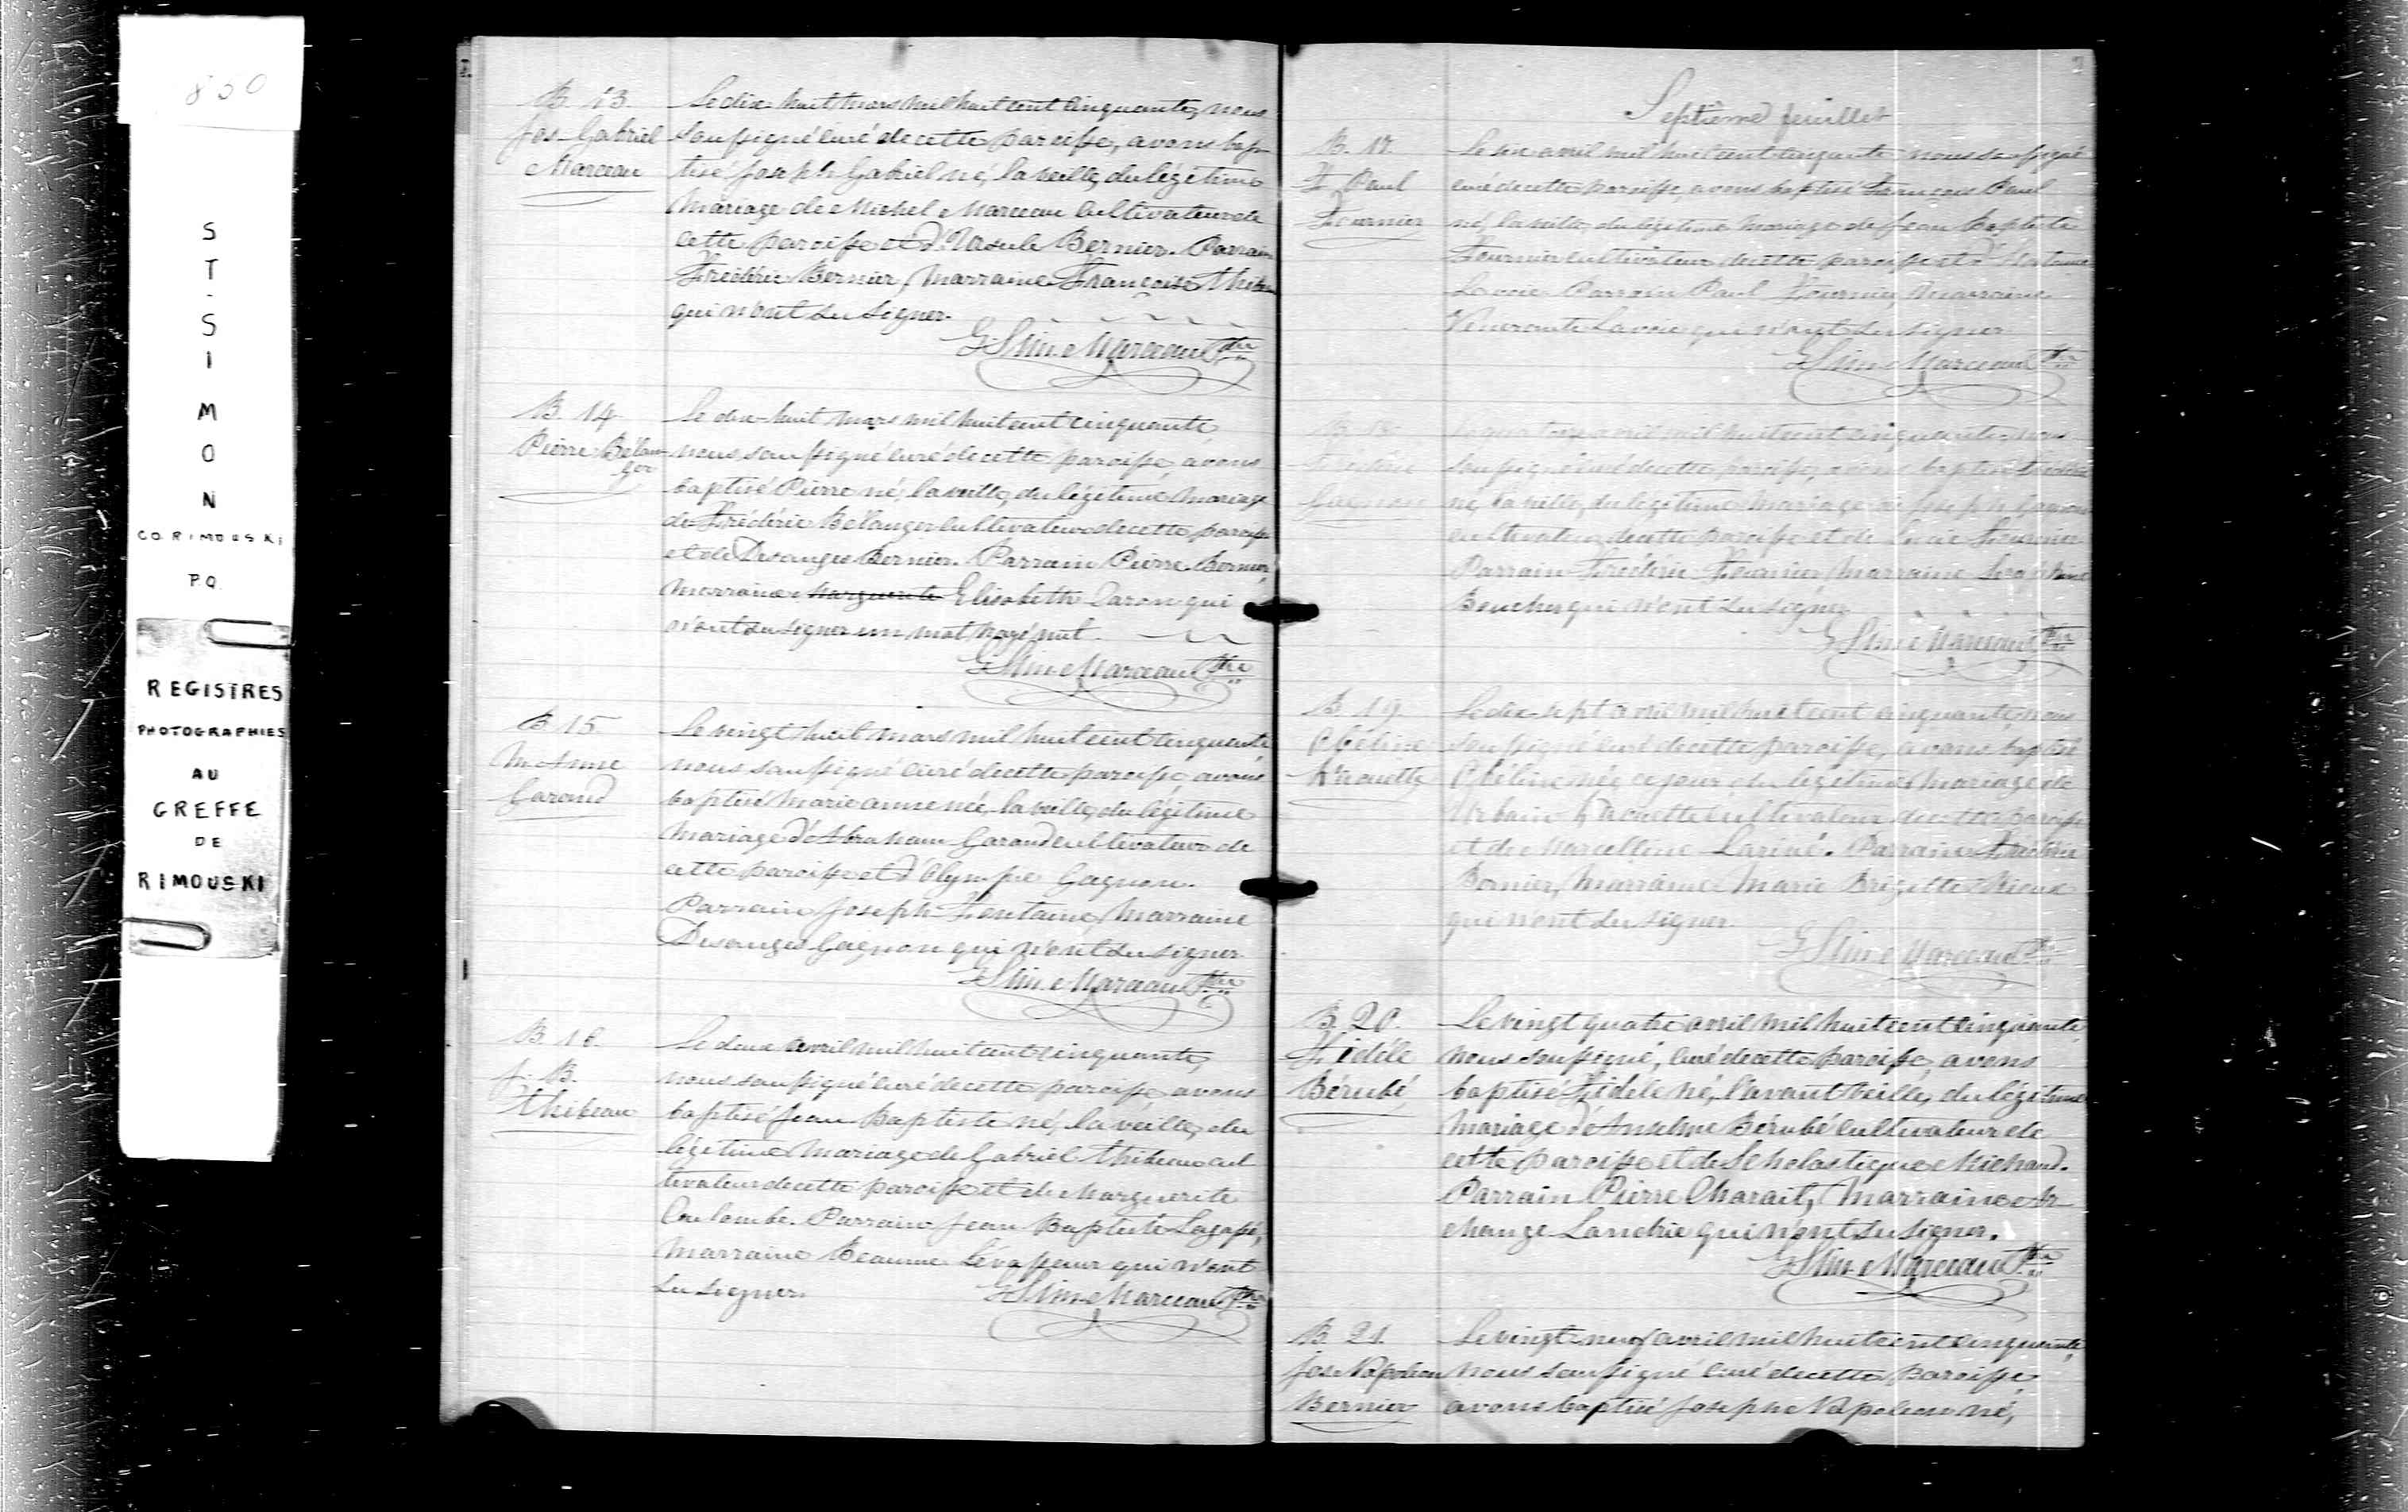 1850
ST-SIMON
CO. RIMOUSKI
P.Q.
REGISTRES
PHOTOGRAPHIES
AU
GREFFE
DE
RIMOUSKI
B. 13.
Jos. Gabriel
Marceau
Le dix-huit mars mil huit cent cinquante, nous
soussigné curé de cette paroisse, avons bap
tisé Joseph Gabriel né, la veille, du légitime
mariage de Michel Marceau cultivateur de
cette paroisse et d'Ursule Bernier. Parrain
Frédéric Bernier, marraine Françoise
qui n'ont su signer.
Marceau Ptre
B. 14
Pierre Bélan-
ger
Le dix-huit mars mil huit cent cinquante,
nous soussigné curé de cette paroisse, avons
baptisé Pierre né, la veille, du légitime mariage
de Frédéric Bélanger cultivateur de cette paroisse
et de Desanges Bernier. Parrain Pierre Bernier,
marraine Marguerite Elisabeth Caron qui
n'ont su signer un mot rayé nul.
Marceau Ptre
B. 15
M. Anne
Garand
Le vingt huit mars mil huit cent cinquante
nous soussigné curé de cette paroisse avons
baptisé Marie Anne née, la veille, du légitime
mariage d'Abraham Garand cultivateur de
cette paroisse et d'Olympe Gagnon.
Parrain Joseph Fontaine, marraine
Desanges Gagnon qui n'ont su signer
Marceau Ptre
B. 16.
J. B.
Thibeau
Le deux avril mil huit cent cinquante,
nous soussigné curé de cette paroisse, avons
baptisé Jean Baptiste né, la veille, du
légitime mariage de Gabriel Thibeau cul
tivateur de cette paroisse et de Marguerite
Coulombe. Parrain Jean Baptiste
marraine qui n'ont
su signer. Marceau Ptre
Septième feuillet
B. 17.
F. Paul
Fournier
Le six avril mil huit cent cinquante nous soussigné
curé de cette paroisse, avons baptisé François Paul
né, la veille, du légitime mariage de Jean Baptiste
Fournier cultivateur de cette paroisse et
Lavoie. Parrain Paul Fournier, marraine
Lavoie qui n'ont su signer
Marceau Ptre
B. 18.
Gagnon
Le quatorze avril mil huit cent cinquante, nous
soussigné curé de cette paroisse, avons baptisé
né, la veille, du légitime mariage de Joseph Gagnon
cultivateur de cette paroisse et de Lucie Fournier
Parrain Frédéric Fournier, marraine
Boucher qui n'ont su signer
Marceau Ptre
B. 19.
Le dix-sept avril mil huit cent cinquante, nous
soussigné curé de cette paroisse, avons baptisé
née, ce jour, du légitime mariage de
Urbain cultivateur de cette paroisse
et de Marcelline. Parrain Frédéric
Bernier, marraine Marie Brigitte Rioux
qui n'ont su signer.
Marceau Ptre
B. 20.
Fidèle
Bérubé
Le vingt quatre avril mil huit cent cinquante,
nous soussigné, curé de cette paroisse, avons
baptisé Fidèle né, l'avant veille, du légitime
mariage d'Anselme Bérubé cultivateur de
cette paroisse et de Scholastique Michaud.
Parrain Pierre, marraine Ar
change Landrie qui n'ont su signer.
Marceau Ptre
B. 21.
Jos. Napoleon
Bernier
Le vingt-neuf avril mil huit cent cinquante,
nous soussigné curé de cette paroisse
avons baptisé Joseph Napoleon né,